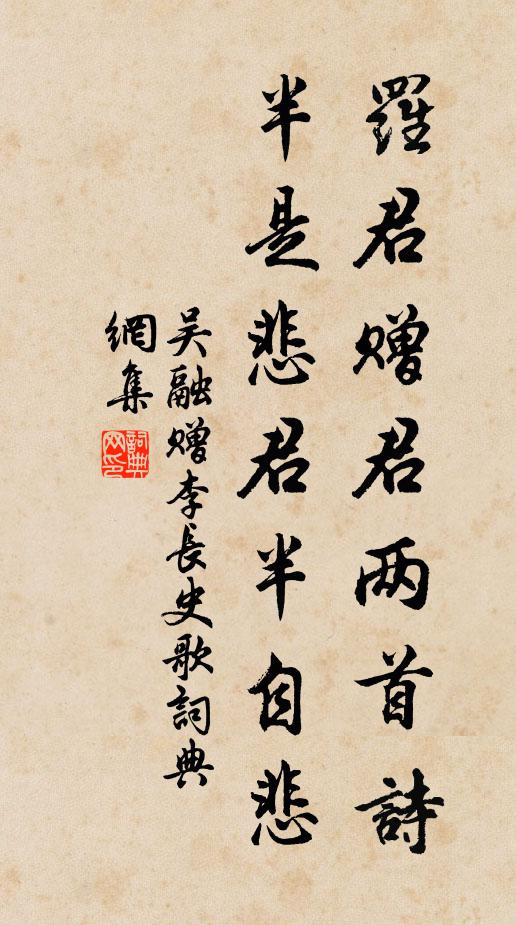 羅君赠君两首詩
半是悲君半自悲
吴融赠李長史歌詞典
網集
詞典网印